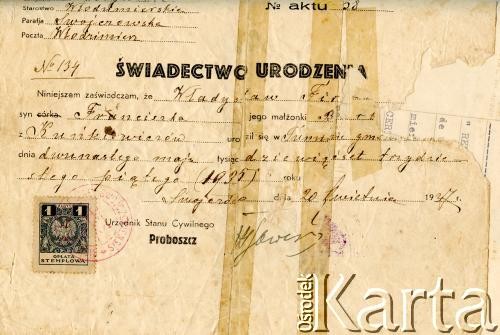 Starostwo Włodzimierskie № aktu 38
Parafja Swojczowska
Poczta Włodzimierz
№ 134
ŚWIADECTWO URODZENIA
Niniejszem zaświadczam, że Władysław
syn córka Franciszka jego małżonki
z uro ził się w
dnia dwunastego maja tysiąc dziewięćset trzydzie
stego piątego (1935) roku
dnia 20 kwietnia 1937 r.
Urzędnik Stanu Cywilnego
Proboszcz
1 1
OPŁATA
STEMPLOWA
Ośrodek
Karta